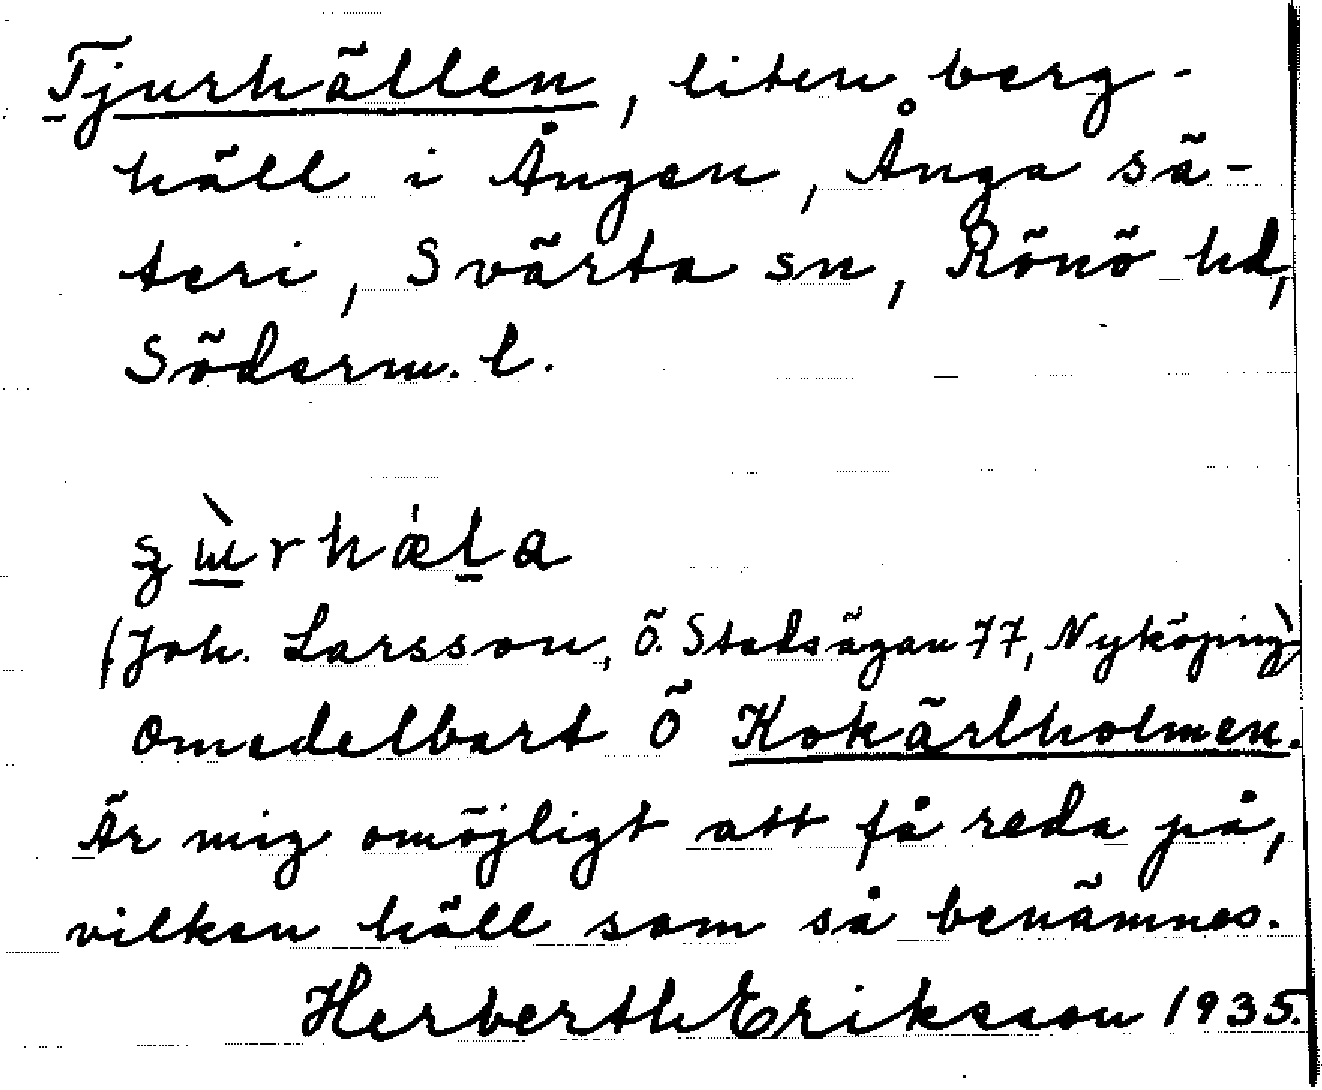 Tjurhällen, liten berg-
häll i Ången, Ånga sä-
teri, Svärta sn, Rönö hd,
Söderm. l.
(Joh. Larsson, Ö. Stadsägan 77, Nyköping)
Omedelbart Ö Kokärlholmen.
Är mig omöjligt att få reda på,
vilken häll som så benämnes.
Herberth Eriksson 1935.